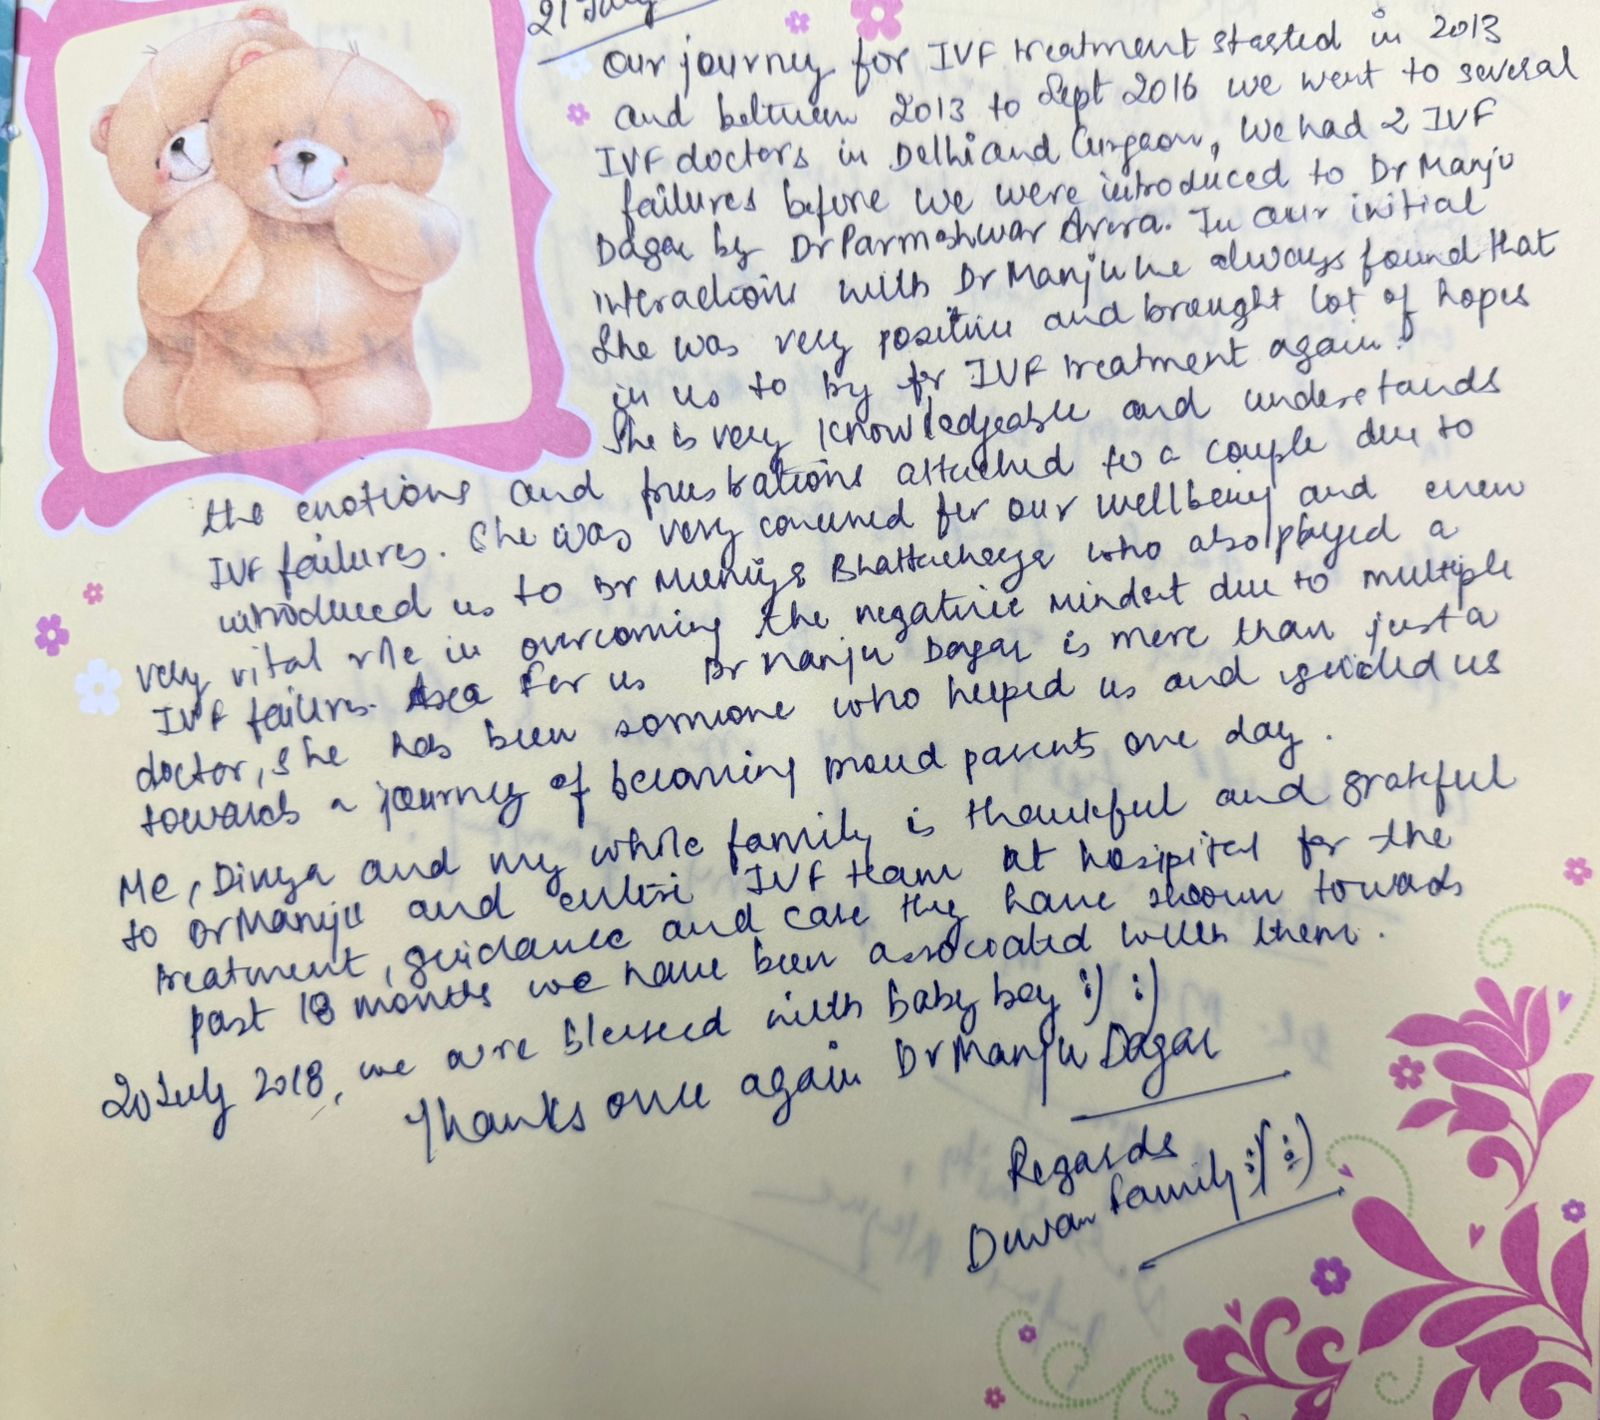 21 July
Our journey for IVF treatment started in 2013
and between 2013 to Sept 2016 we went to several
IVF doctors in Delhi and Gurgaon, We had 2 IVF
failures before we were introduced to Dr Manju
Dagar by Dr Parmeshwar Arora. In our initial
interactions with Dr Manju we always found that
She was very positive and brought lot of hopes
in us to try for IVF treatment again.
She is very knowledgeable and understands
the emotions and frustrations attached to a couple due to
IVF failures. She was very concerned for our wellbeing and even
introduced us to Dr Bhattacharya who also played a
very vital role in overcoming the negative mindset due to multiple
IVF failures. For us Dr Manju Dagar is more than just a
doctor, She has been someone who helped us and guided us
towards a journey of becoming proud parents one day.
Me, Divya and my whole family is thankful and grateful
to Dr Manju and entire IVF team at hospital for the
treatment, guidance and care they have shown towards
past 18 months we have been associated with them.
20 July 2018, we were blessed with baby boy :) :)
Thanks once again Dr Manju Dagar
Regards
Duwan family :) :)